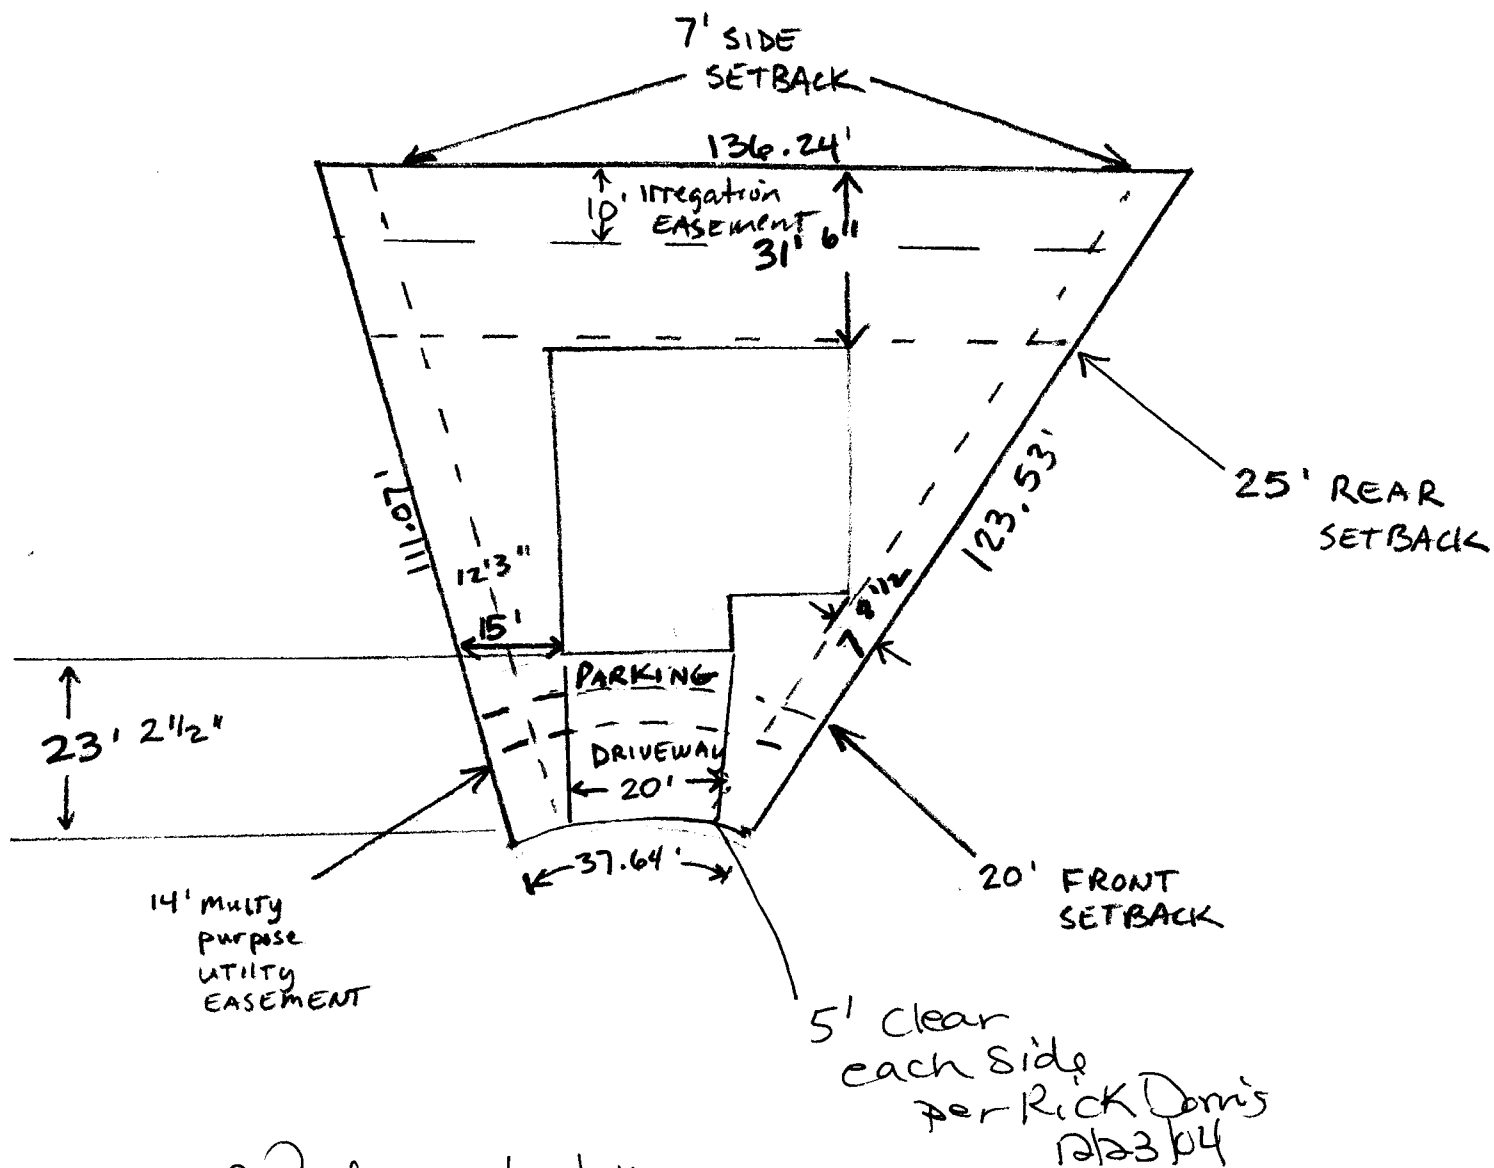 7' SIDE
SETBACK
136.24'
10' Irregation
EASEMENT
31' 6"
111.07'
123.53'
25' REAR
SETBACK
12'3"
15'
7' 8"1/2
PARKING
23' 2 1/2"
DRIVEWAY
20'
37.64'
20' FRONT
SETBACK
14' Multy
purpose
UTILTY
EASEMENT
5' Clear
each side
per Rick Dorris
12/23/04